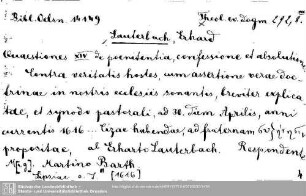 Bibl. Acken. 14149 Theol. ev. dogm 292, 8
Lauterbach, Erhard
Quaestiones XIV de poenitentia, confessione et absolution
Contra veritatis hostes cum assertione verae doc-
trinae in nostris ecclesiis sonantis, breviter explica
tae, et synodo pastorali, ad 30. diem Aprilis, anni
currentis 1616 ... Cizae habendae, ad fraternam
propositae, al Erharto Lauterbach. Respondent
M[ag]. Martino Barth
Lipsiae o. J. [1616]